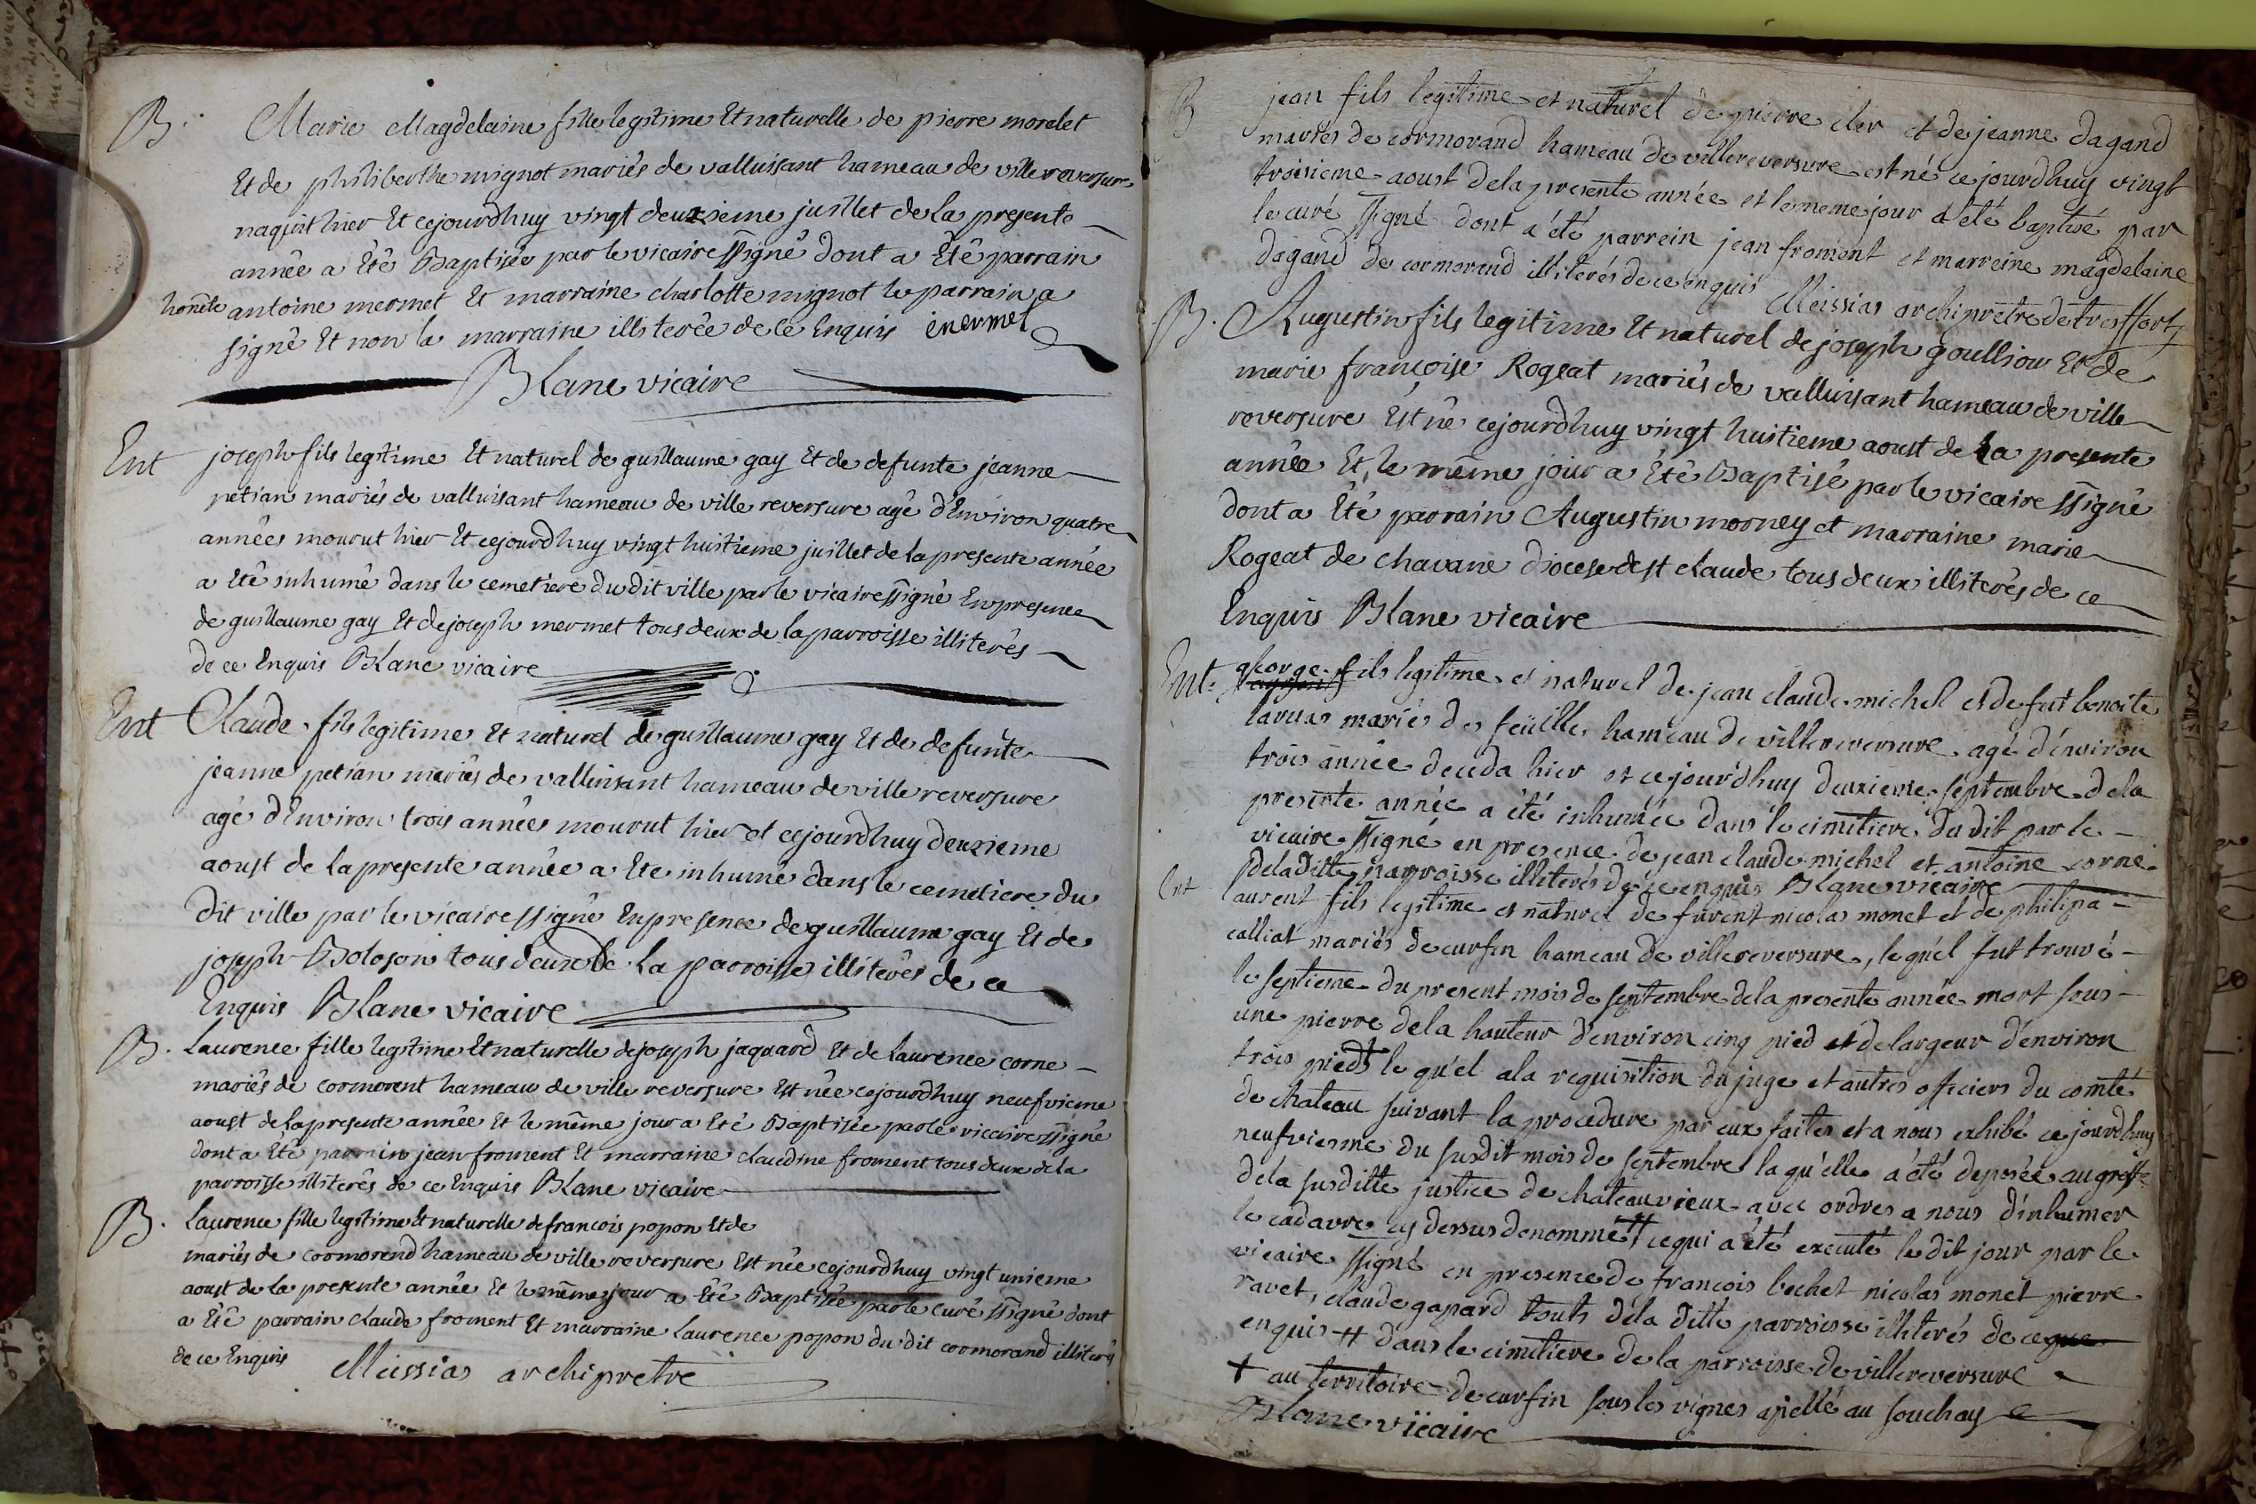 B. Marie Magdelaine fille legitime Et naturelle de pierre morelet
Et de philiberthe mignot mariés de valluisant hameau de ville reversure
naquit hier Et cejourdhuy vingt deuxieme juillet de la presente
année a Eté Baptisée par le vicaire ssigné dont a Eté parrain
honête antoine mermet Et marraine charlotte mignot le parrain a
signé Et non la marraine illiterée de ce Enquis
Blanc vicaire
Ent joseph fils legitime Et naturel de guillaume gay Et de defunte jeanne
petian mariés de valluisant hameau de ville reversure agé d'Environ quatre
années mourut hier Et cejourdhuy vingt huitieme juillet de la presente année
a Eté inhumé dans le cemetiere du dit ville par le vicaire ssigné En presence
de guillaume gay Et de joseph mermet tous deux de la parroisse illiterés
de ce Enquis Blanc vicaire
Ent Claude fils legitime Et naturel de guillaume gay Et de defunte
jeanne petian mariés de valluisant hameau de ville reversure
agé d'Environ trois années mourut hier et cejourdhuy deuxieme
aoust de la presente année a Ete inhumé dans le cemetiere du
dit ville par le vicaire ssigné En presence de guillaume gay Et de
joseph Boloson tous deux de la parroisse illiterés de ce
Enquis Blanc vicaire
B. Laurence fille legitime Et naturelle de joseph jaquard Et de laurence corne
mariés de cormorent hameau de ville reversure Est née cejourdhuy neufvieme
aoust de la presente année Et le même jour a Eté Baptisée par le vicaire ssigné
dont a Eté parrain jean froment Et marraine claudine froment tous deux de la
parroisse illiterés de ce Enquis Blanc vicaire
B. Laurence fille legitime Et naturelle de francois popon Et de
mariés de cormorend hameau de ville reversure Est née cejourdhuy vingt unieme
aoust de la presente année Et le même jour a Eté Baptisée par le curé ssigné dont
a Eté parrain claude froment Et marraine laurence popon du dit cormorand illiterés
de ce Enquis Meissias archiprêtre
B jean fils legitime et naturel de pierre cler et de jeanne dagand
mariés de cormorand hameau de villereversure est né ce jourdhuy vingt
troisieme aoust de la presente année et le meme jour a été baptisé par
le curé ssigné dont a été parrein jean froment et marreine magdelaine
dagand de cormorand illiterés de ce enquis Meissias archiprêtre de treffort
B. Augustin fils legitime Et naturel de joseph goullion Et de
marie françoise Rogeat mariés de valluisant hameau de ville
reversure Est né cejourdhuy vingt huitieme aoust de la presente
année Et le même jour a Eté Baptisé par le vicaire ssigné
dont a Eté parrain Augustin morney et marraine marie
Rogeat de chavane diocese de st claude tous deux illiterés de ce
Enquis Blanc vicaire
Ent. george fils legitime et naturel de jean claude michel et de fut benoite
laruas mariés de feüilles hameau de villereversure agé d'environ
trois année deceda hier et ce jourd'huy deuxieme septembre de la
presente année a été inhumée dans le cimitiere du dit par le
vicaire ssigné en presence de jean claude michel et antoine corne
de la ditte parroisse illiterés de ce enquis Blanc vicaire
Ent laurent fils legitime et naturel de furent nicolas monet et de philipa
calliat mariés de curfin hameau de villereversure, le qu'el fut trouvé
le septieme du present mois de septembre de la presente année mort sous
une pierre de la hauteur d'environ cinq pied et de largeur d'environ
trois pieds le qu'el a la requisition du juge et autres officiers du comté
de chateau suivant la procedure par eux faites et a nous exhibé ce jourdhuy
neufviesme du susdit mois de septembre la qu'elle a été deposée au greffe
de la susditte justice de chateauvieux avec ordres a nous d'inhumer
le cadavre cy dessus denommé ++ ce qui a été executé le dit jour par le
vicaire ssigné en presence de francois bochet nicolas monet pierre
ravet, claude gapard touts de la ditte parroisse illiterés de ce
enquis ++ dans le cimitiere de la parroisse de villereversure
+ au territoire de curfin sous les vignes apellé au souchay
Blanc vicaire